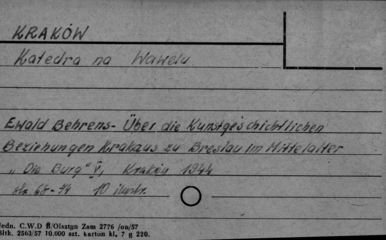 KRAKÓW
Katedra na Wawelu
Ewald Behrens - Über die Kunstgeschichtlichen
Beziehungen Krakaus zu Breslau im Mittelalter
"Die Burg" V, Kraków 1944
10 ilustr.
C.W.D Olsztyn Zam 2776 /on/57
2563/57 10.000 szt. karton kl, 7 g 220.